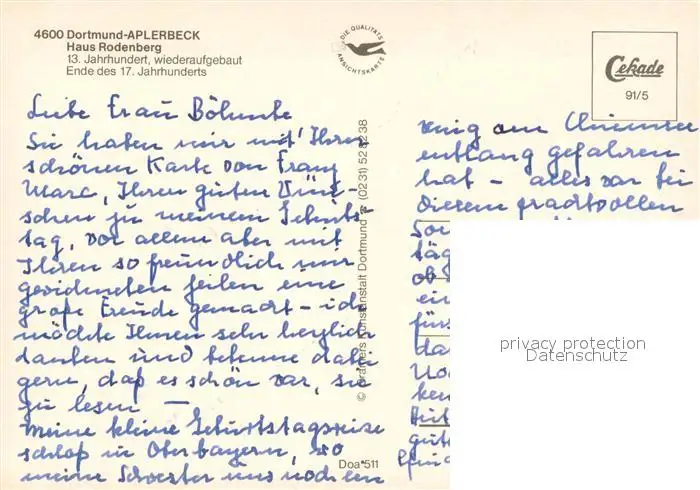 4600 Dortmund-APLERBECK
Haus Rodenberg
13. Jahrhundert, wiederaufgebaut
Ende des 17. Jahrhunderts
DIE QUALITÄTS
ANSICHTSKARTE
Cekade
91/5
Liebe Frau
Sie haben mir mit Ihrer
schönen Karte von Franz
Marc, Ihren guten Wün-
schen zu meinem Geburts-
tag, vor allem aber mit
Ihren so freundlich mir
gewidmeten Zeilen eine
große Freude gemacht – ich
möchte Ihnen sehr herzlich
danken und bekenne dabei
gern, daß es schön war, sie
zu lesen –
Meine kleine Geburtstagsreise
schloß in Oberbayern, wo
meine Schwester uns noch ein
wenig am Chiemsee
entlang gefahren
hat – alles war bei
diesem prachtvollen
täg
ob
ein
für
da
ken
gut
Cramers Kunstanstalt Dortmund
Doa 511
privacy protection
Datenschutz